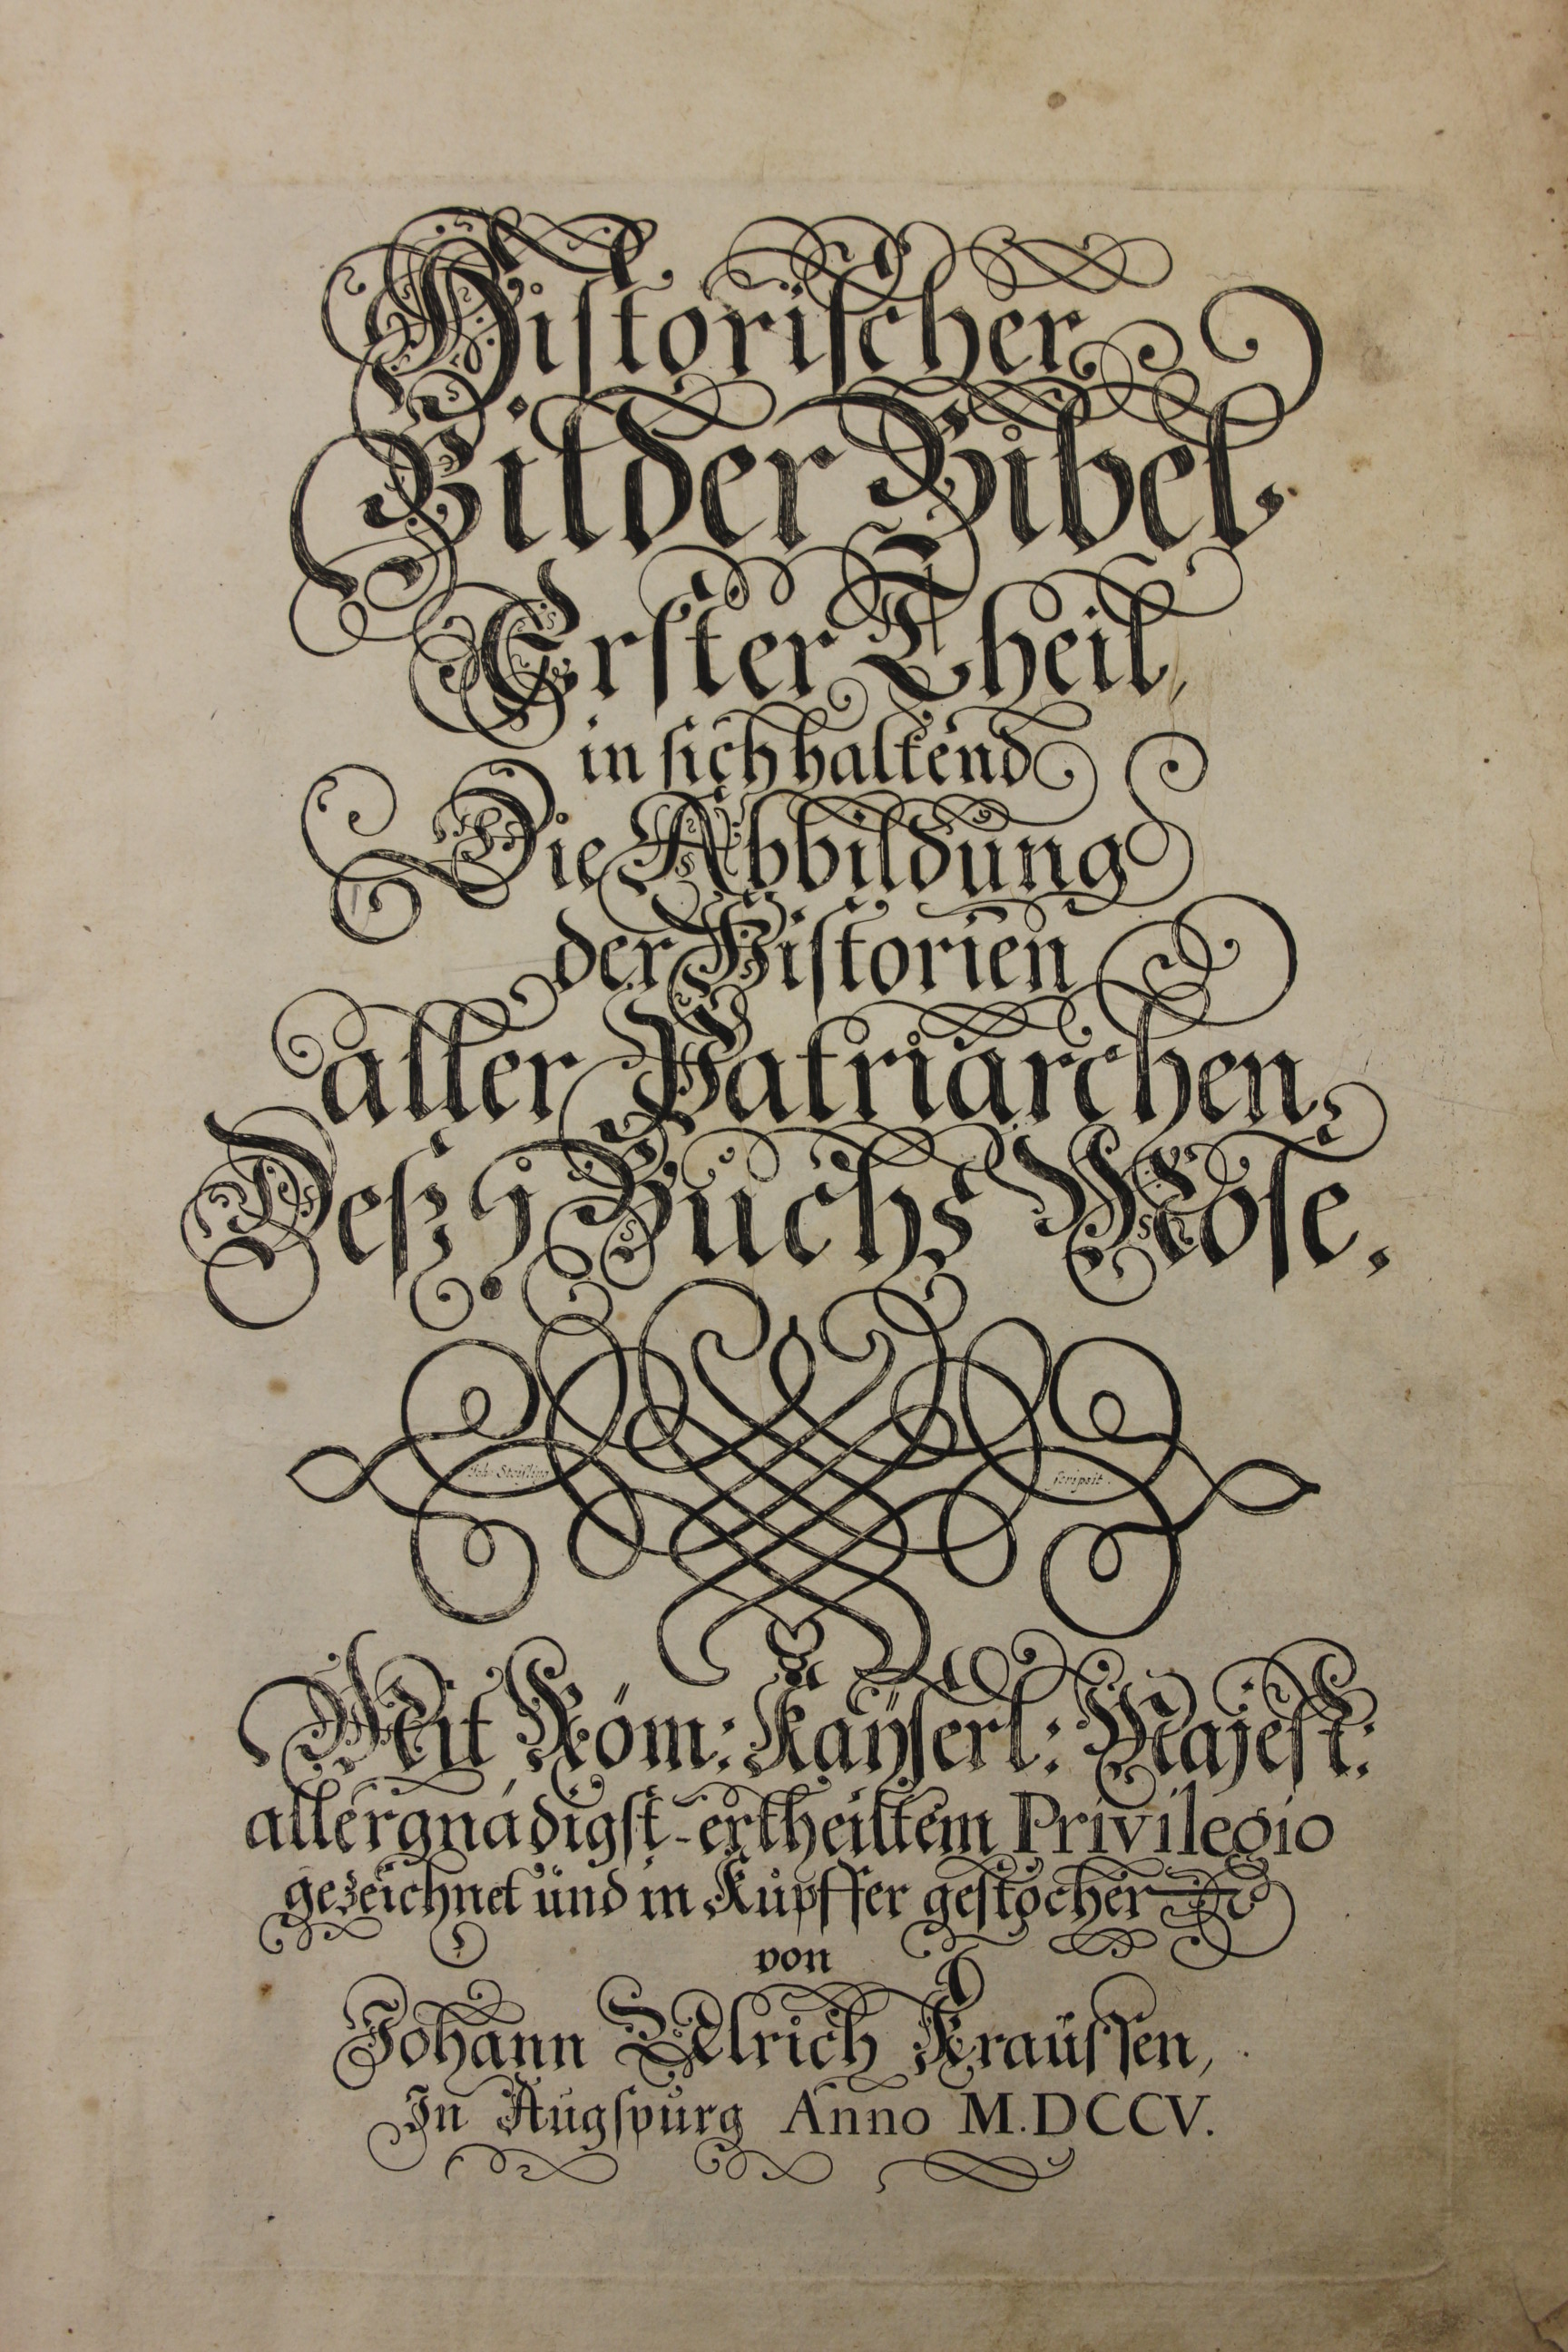 Historischer
Bilder Bibel.
Erster Theil,
in sich haltend
Die Abbildung
der Historien
aller Patriarchen,
Desz I Buchs Mose.
Joh: scripsit.
Mit Röm: Kaÿserl: Majest:
allergnädigst-ertheiltem Privilegio
gezeichnet und in Kupffer gestochen
von
Johann Ulrich Kraussen,
In Augspurg Anno M.DCCV.